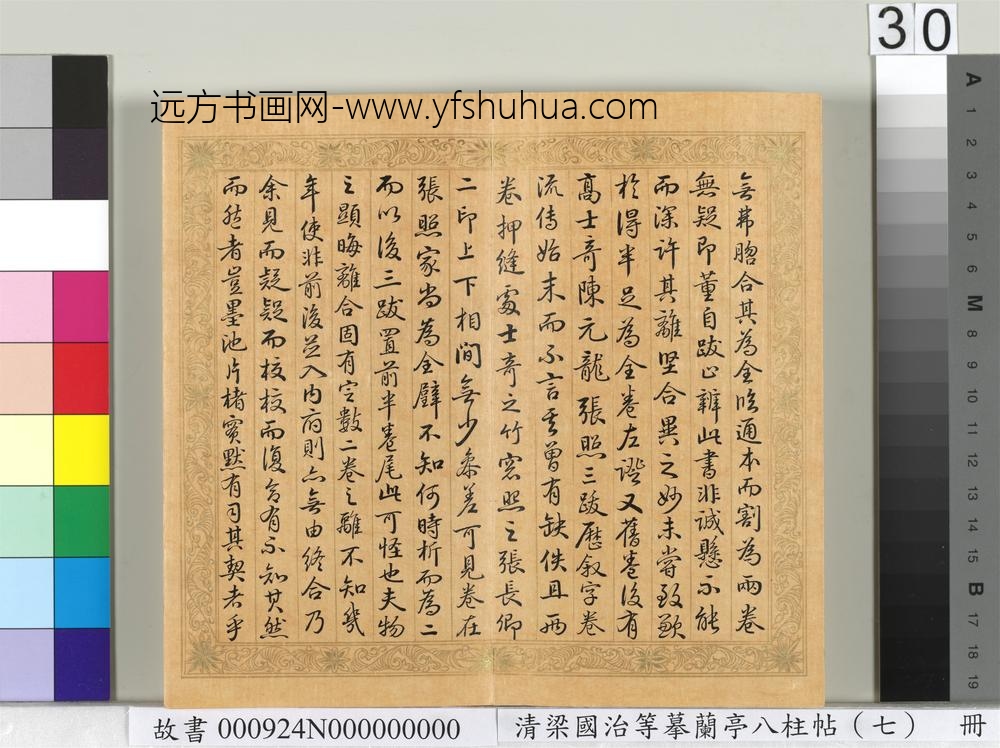 30
远方书画网-www.yfshuhua.com
無弗脗合其為全臨通本而割為兩卷
無疑即董自跋止辨此書非誠懸不能
而深許其離堅合異之妙未嘗致歉
於得半足為全卷左證又舊卷後有
高士奇陳元龍張照三跋歷叙字卷
流傳始末而不言其曾有缺佚且兩
卷押縫處士奇之竹窓照之張長卿
二印上下相間無少叅差可見卷在
張照家尚為全璧不知何時析而為二
而以後三跋置前半卷尾此可怪也夫物
之顯晦離合固有定數二卷之離不知幾
年使非前後並入内府則亦無由終合乃
余見而疑疑而校校而復合有不知其然
而然者豈墨池片楮實默有司其契者乎
A
1
2
3
4
5
6
M
8
9
10
11
12
13
14
15
B
17
18
19
故書 000924N000000000
清梁國治等摹蘭亭八柱帖（七） 冊